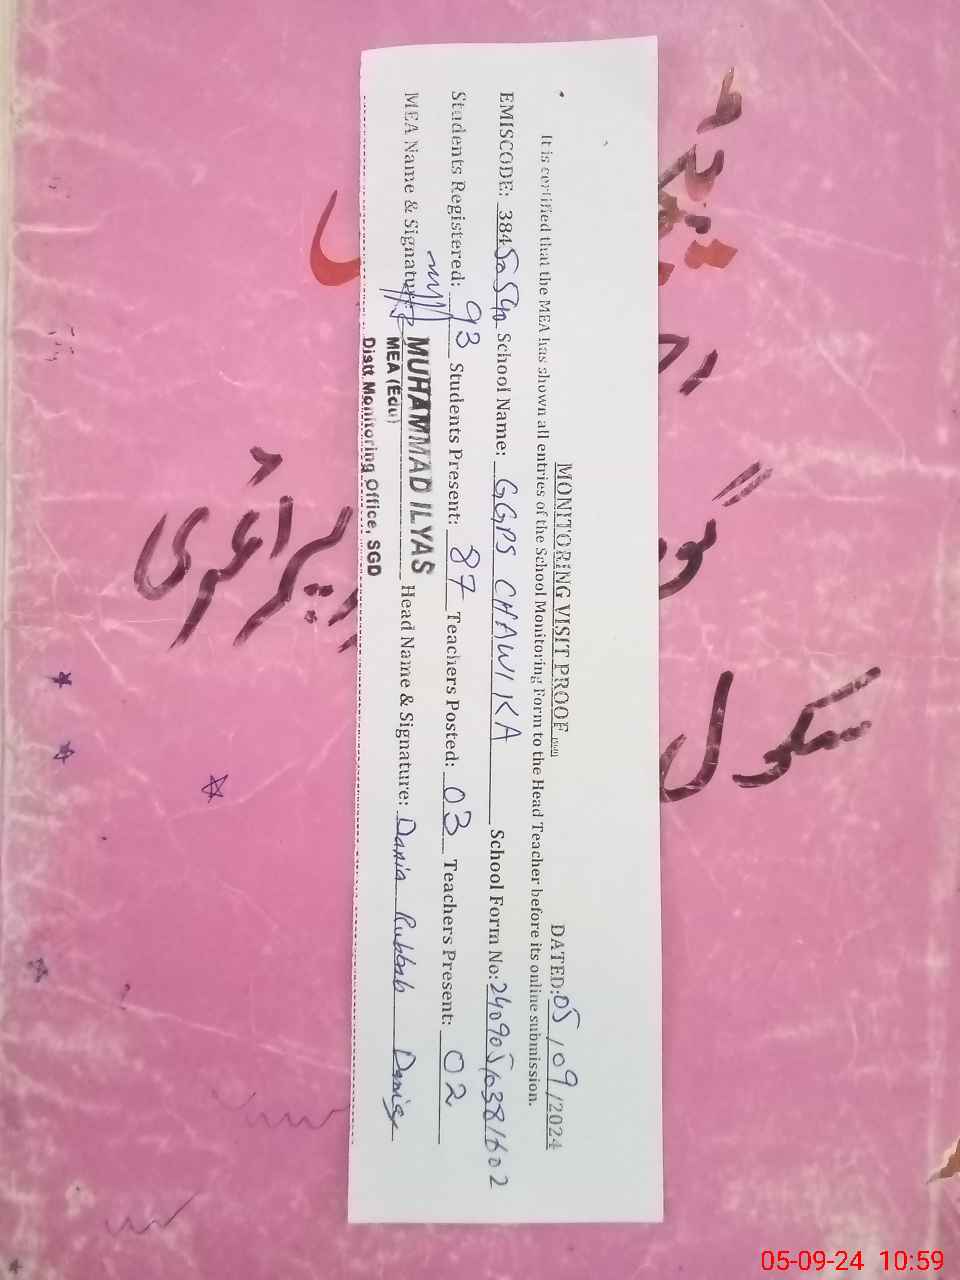 MONITORING VISIT PROOF
DATED: 05/09/2024
It is certified that the MEA has shown all entries of the School Monitoring Form to the Head Teacher before its online submission.
EMISCODE: 38450540 School Name: GGPS CHAWIKA School Form No: 24090510381602
Students Registered: 93 Students Present: 87 Teachers Posted: 03 Teachers Present: 02
MEA Name & Signature: MUHAMMAD ILYAS Head Name & Signature: Dania Rubbab
MEA (Edu)
Distt Monitoring Office, SGD
سکول
05-09-24 10:59